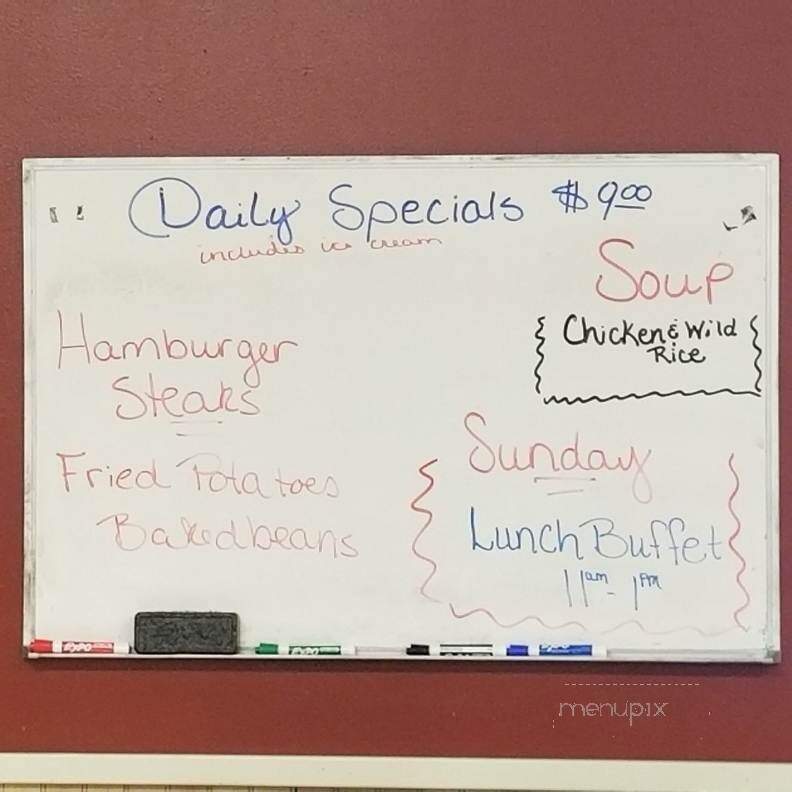 Daily Specials $9.00
includes ice cream
Hamburger
Steaks
Fried Potatoes
Baked beans
Soup
Chicken & Wild
Rice
Sunday
Lunch Buffet
11am - 1pm
EXPO
EXPO
EXPO
menupix